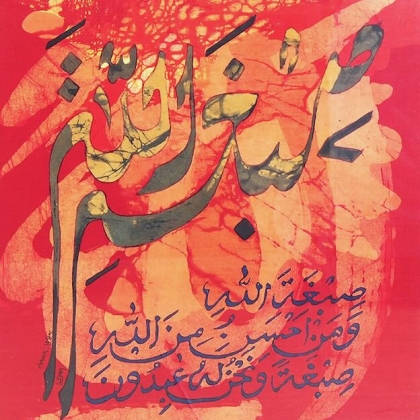 صبغة الله
صِبْغَةَ اللهِ
وَمَنْ احْسَنُ مِنَ اللهِ
صِبْغَةً وَنَحْنُ لَهُ عٰبِدُونَ